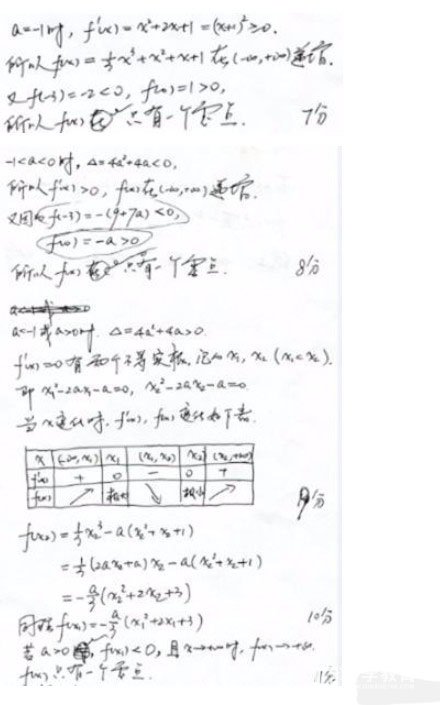 a=-1时, f'(x)=x²+2x+1=(x+1)²≥0.
所以 f(x)=⅓x³+x²+x+1 在(-∞,+∞)递增.
又f(-3)=-2<0, f(0)=1>0,
所以 f(x) 只有一个零点. 7分
-1<a<0时, Δ=4a²+4a<0,
所以f'(x)>0, f(x)在(-∞,+∞)递增.
又因为f(-3)=-(9+7a)<0,
f(0)=-a>0
所以 f(x) 只有一个零点. 8分
a<-1或a>0时. Δ=4a²+4a>0.
f'(x)=0有两个不等实根, 记为x₁, x₂ (x₁<x₂).
即 x₁²-2ax₁-a=0, x₂²-2ax₂-a=0.
当x变化时, f'(x), f(x)变化如下表.
x (-∞,x₁) x₁ (x₁,x₂) x₂ (x₂,+∞)
f'(x) + 0 - 0 +
f(x) ↗ 极大 ↘ 极小 ↗
9分
f(x₂)=⅓x₂³-a(x₂²+x₂+1)
=⅓(2ax₂+a)x₂-a(x₂²+x₂+1)
=-a/3(x₂²+2x₂+3)
同理f(x₁)=-a/3(x₁²+2x₁+3) 10分
若a>0, f(x₁)<0, 且x→+∞时, f(x)→+∞.
f(x)只有一个零点. 11分